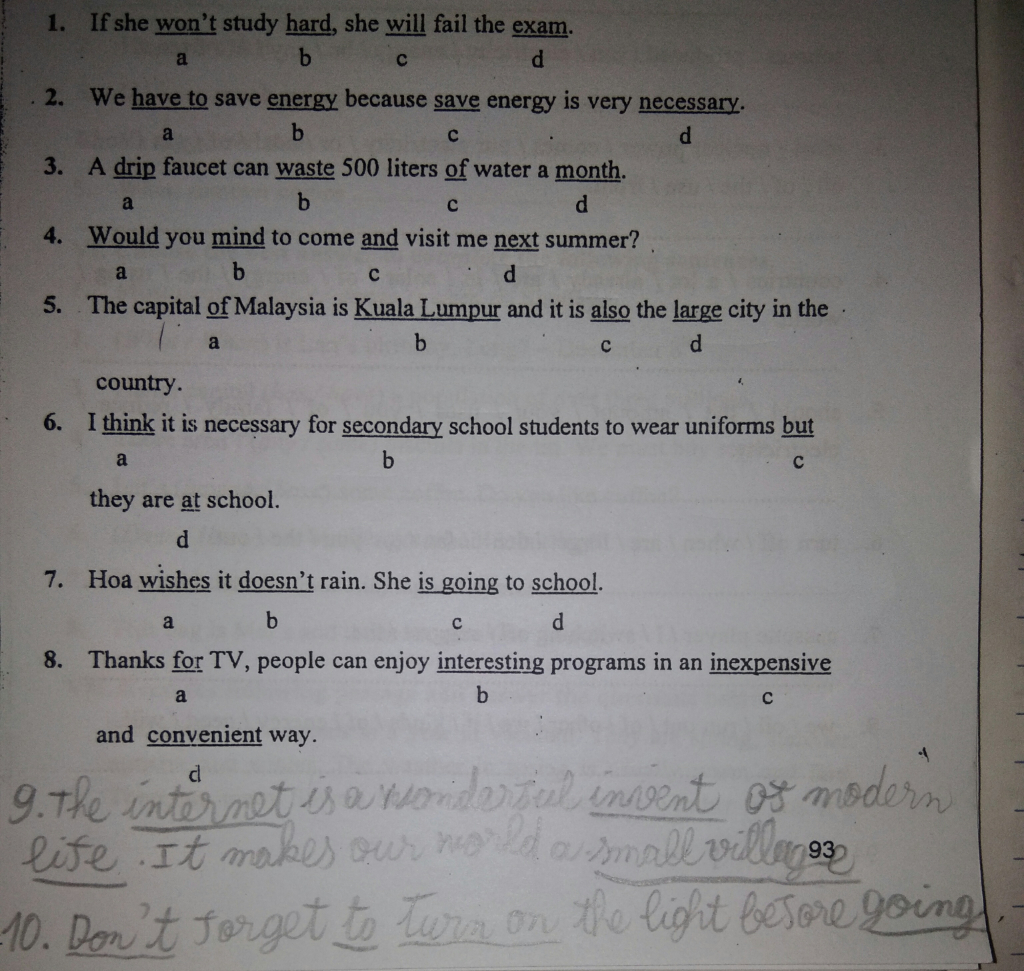 1. If she won't study hard, she will fail the exam.
a b c d
2. We have to save energy because save energy is very necessary.
a b c d
3. A drip faucet can waste 500 liters of water a month.
a b c d
4. Would you mind to come and visit me next summer?
a b c d
5. The capital of Malaysia is Kuala Lumpur and it is also the large city in the
a b c d
country.
6. I think it is necessary for secondary school students to wear uniforms but
a b c
they are at school.
d
7. Hoa wishes it doesn't rain. She is going to school.
a b c d
8. Thanks for TV, people can enjoy interesting programs in an inexpensive
a b c
and convenient way.
d
9. The internet is a wonderful invent of modern
life. It makes our world a small village
93
10. Don't forget to turn on the light before going